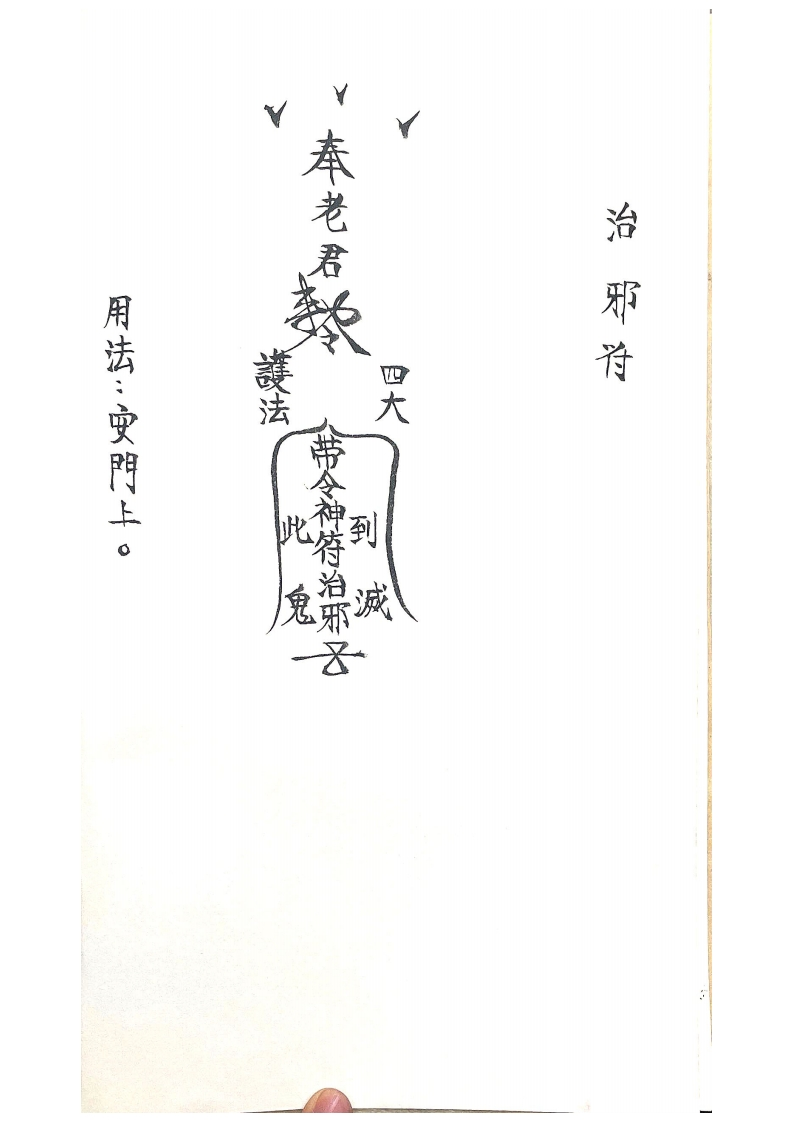 治邪符
奉老君
四大
護法
带令神符治邪
到此
滅鬼
用法：安門上。